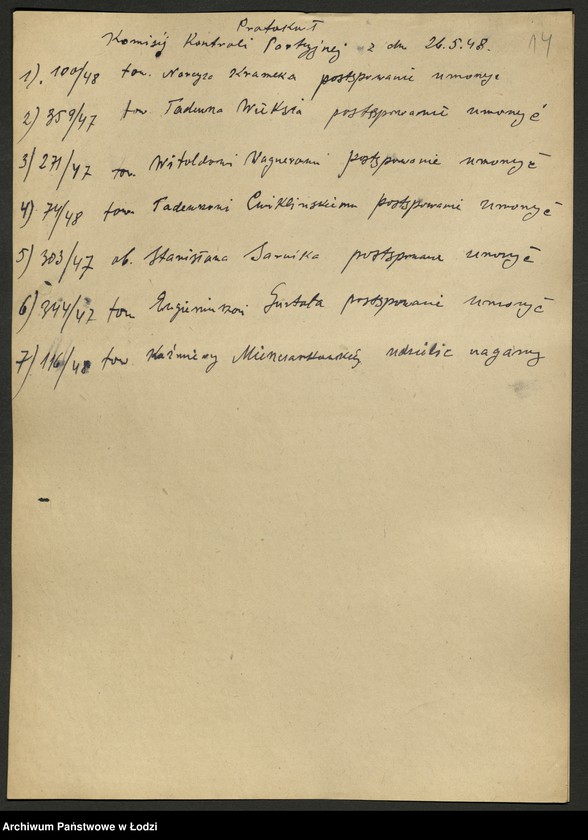 Protokuł
Komisij Kontroli Partyjnej z dn. 26.5.48. 14
1). 100/48 tow. Narcyza Krameka postępowanie umorzyć
2) 359/47 tow Tadeusza postępowanie umorzyć
3) 271/47 tow. Witoldowi Wagnerowi postępowanie umorzyć
4). 74/48 tow. Tadeuszowi Ćwiklińskiemu postępowanie umorzyć
5) 303/47 ob. Stanisława postępowanie umorzyć
6) 344/47 tow postępowanie umorzyć
7) 116/48 tow udzielić nagany
Archiwum Państwowe w Łodzi